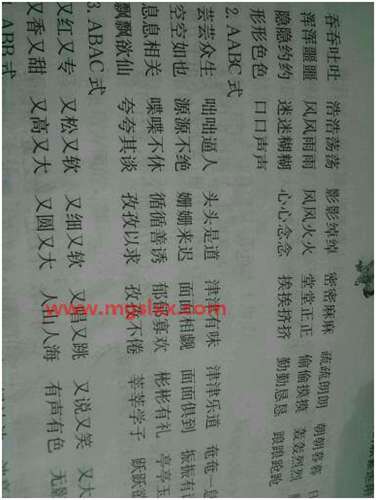 吞吞吐吐 浩浩荡荡 影影绰绰 密密麻麻 疏疏朗朗
浑浑噩噩 风风雨雨 风风火火 堂堂正正 偷偷摸摸 朝朝暮暮
隐隐约约 迷迷糊糊 心心念念 挨挨挤挤 勤勤恳恳 轰轰烈烈
形形色色 口口声声 踉踉跄跄
2. AABC 式
芸芸众生 咄咄逼人 头头是道 津津有味 津津乐道 奄奄一
空空如也 源源不绝 姗姗来迟 面面相觑 面面俱到 振振有
息息相关 喋喋不休 循循善诱 郁郁寡欢 彬彬有礼 亭亭玉
飘飘欲仙 夸夸其谈 孜孜以求 孜孜不倦 莘莘学子 跃跃欲
3. ABAC 式
又红又专 又松又软 又细又软 又唱又跳 又说又笑 又大
又香又甜 又高又大 又圆又大 人山人海 有声有色 无影
ABB 式
www.mgslxx.com